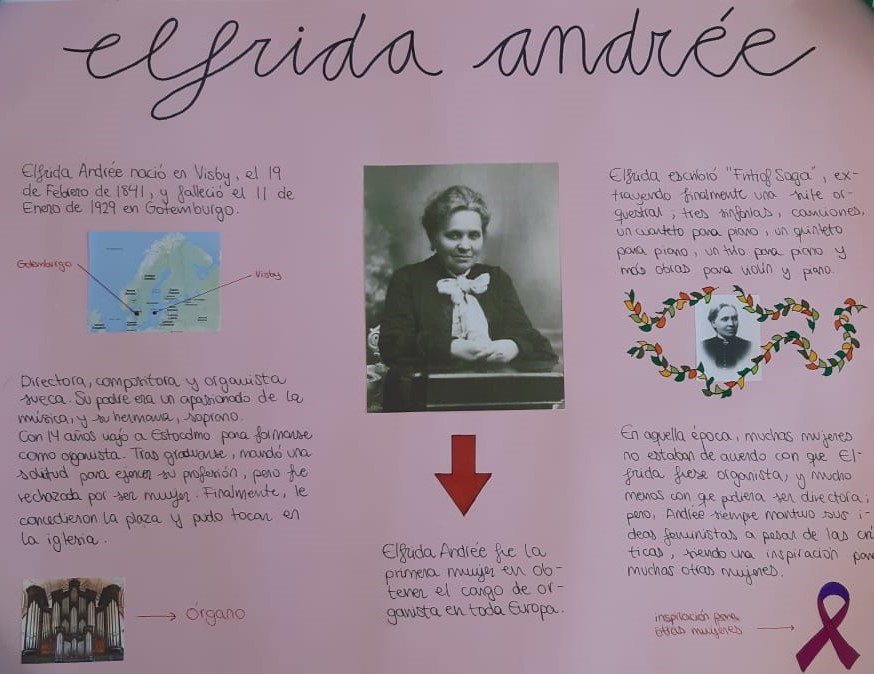 elfrida andrée
Elfrida Andrée nació en Visby, el 19
de Febrero de 1841, y falleció el 11 de
Enero de 1929 en Gotemburgo.
Gotemburgo
Visby
Directora, compositora y organista
sueca. Su padre era un apasionado de la
música, y su hermana, soprano.
Con 14 años viajó a Estocolmo para formarse
como organista. Tras graduarse, mandó una
solicitud para ejercer su profesión, pero fue
rechazada por ser mujer. Finalmente, le
concedieron la plaza y pudo tocar en
la iglesia.
Órgano
Elfrida Andrée fue la
primera mujer en ob-
tener el cargo de or-
ganista en toda Europa.
Elfrida escribió "Fritiof Saga", ex-
trayendo finalmente una suite or-
questral; tres sinfonías, canciones,
un cuarteto para piano, un quinteto
para piano, un trío para piano y
más obras para violín y piano.
En aquella época, muchas mujeres
no estaban de acuerdo con que El-
frida fuese organista, y mucho
menos con que pudiera ser directora;
pero, Andrée siempre mantuvo sus i-
deas feministas a pesar de las crí-
ticas, siendo una inspiración para
muchas otras mujeres.
inspiración para
otras mujeres